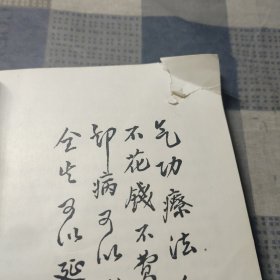 气功療法
不花錢不费
却病可以
全生可以延